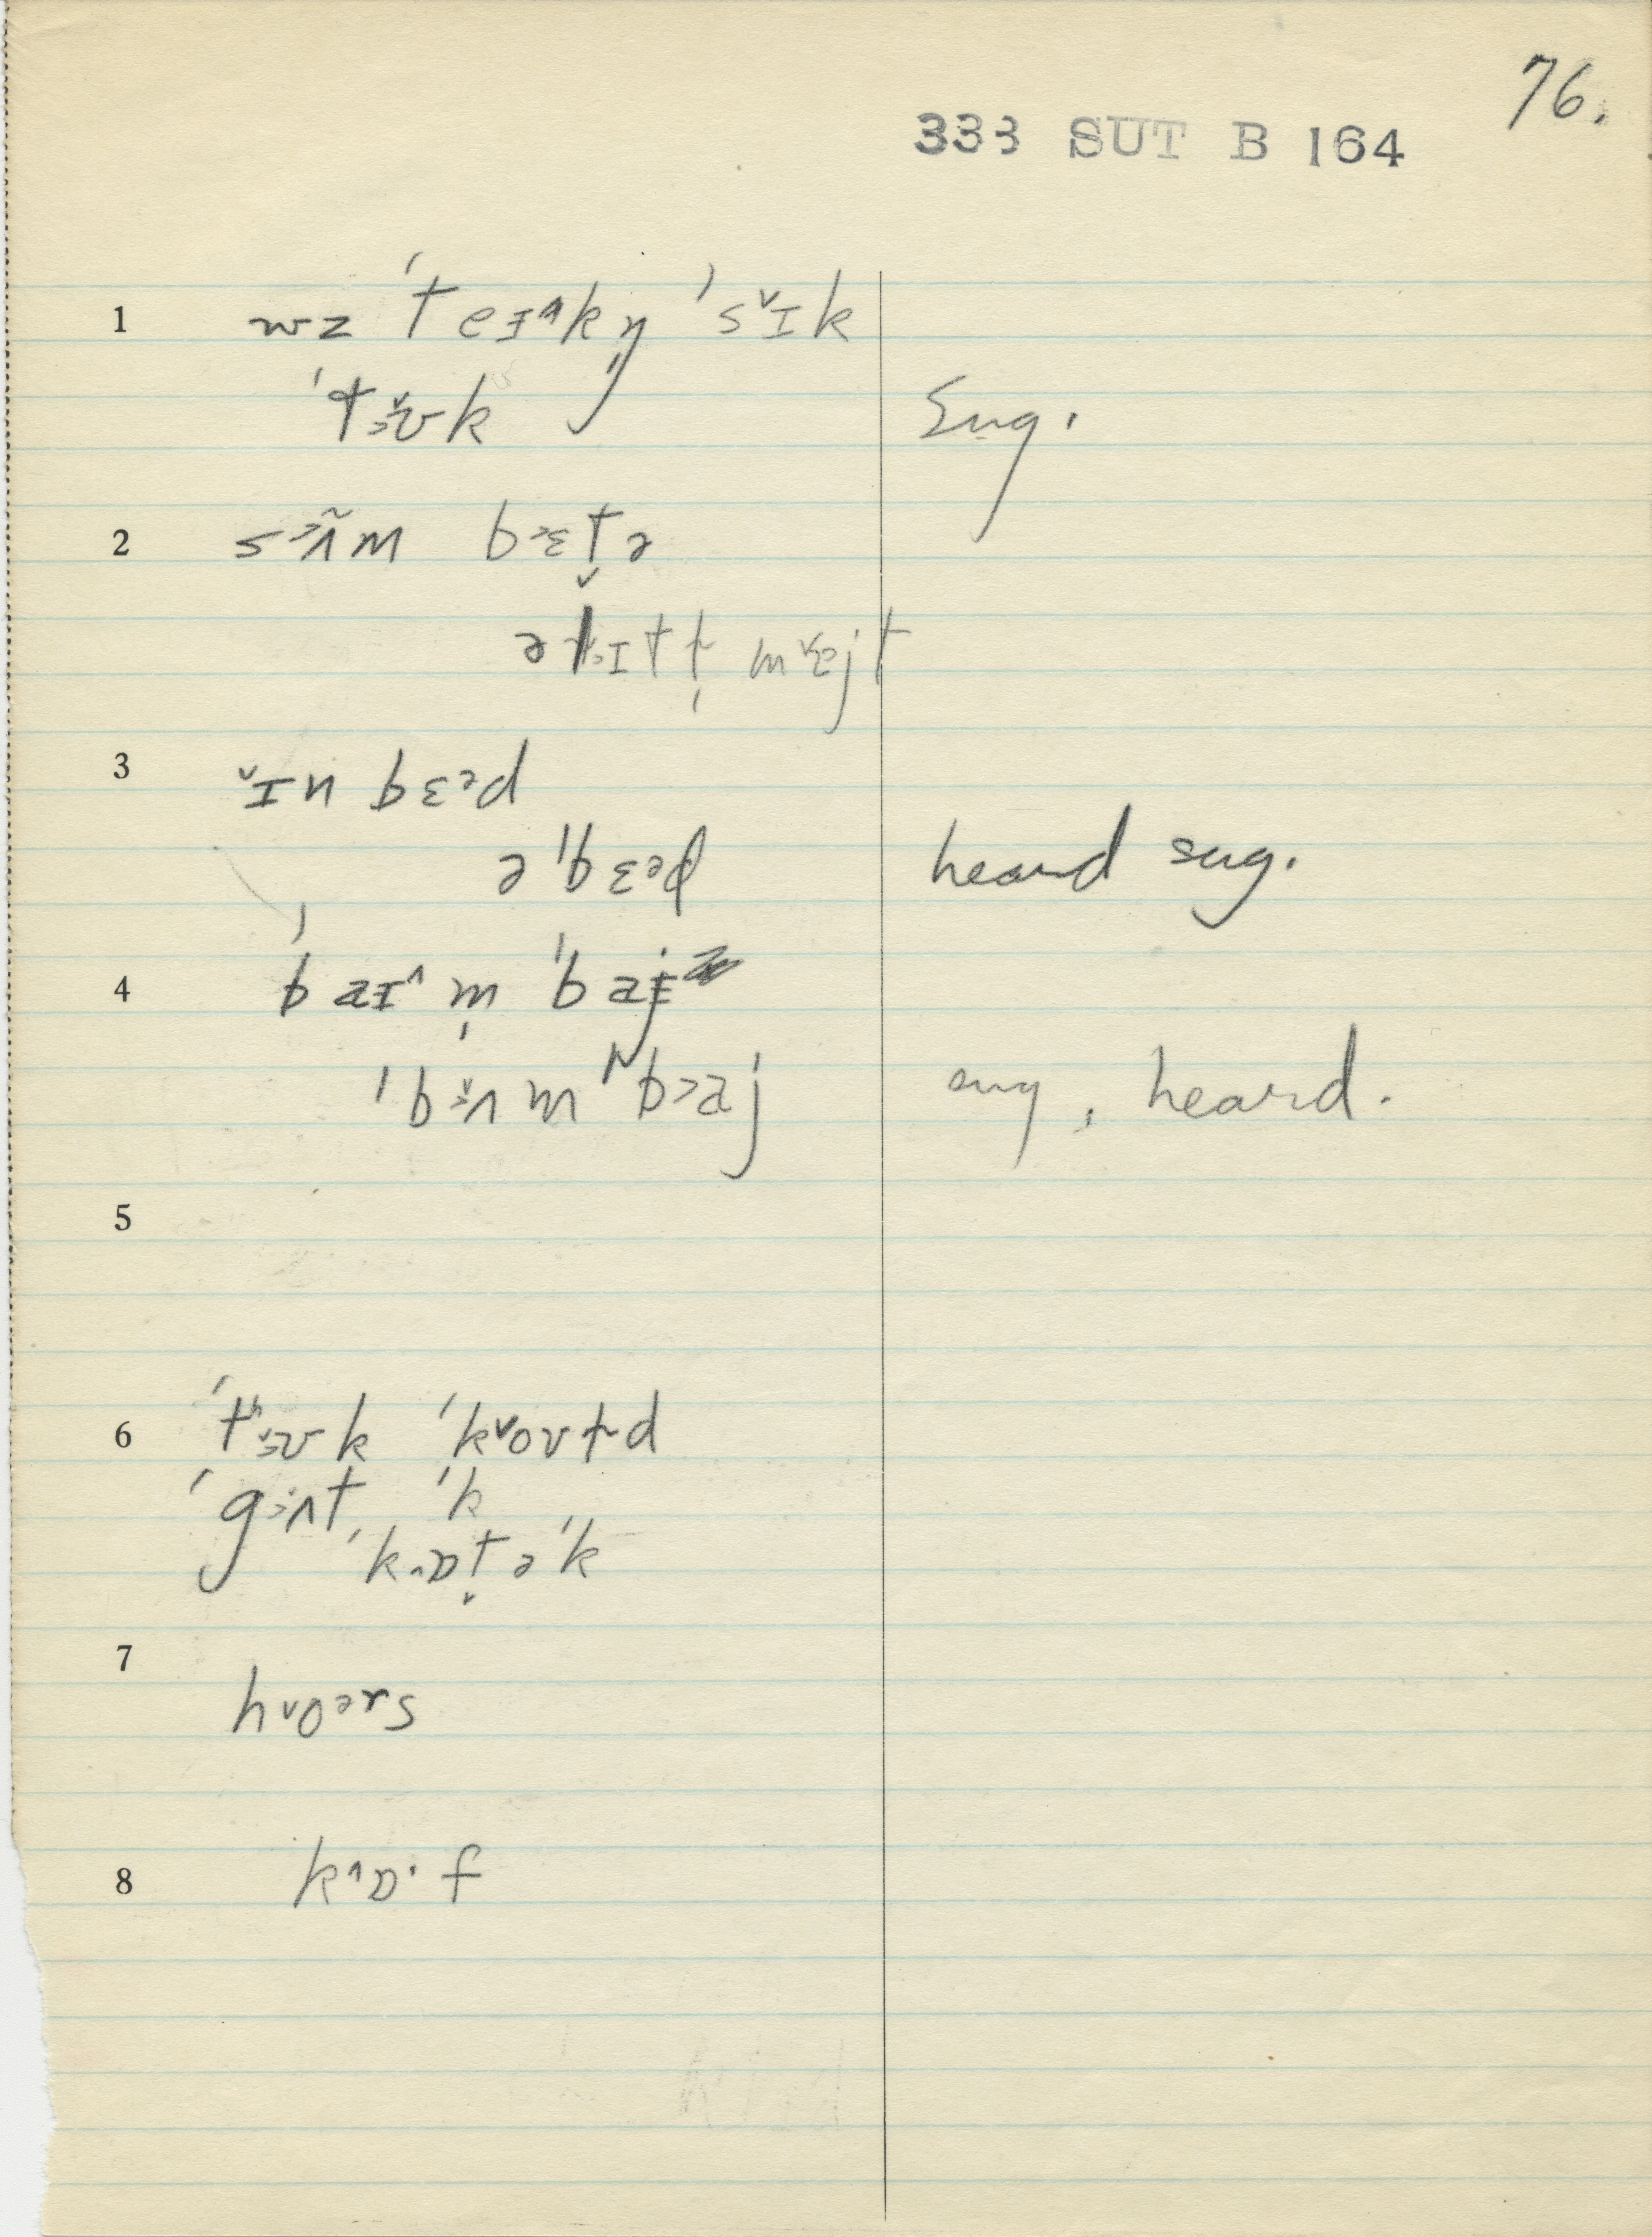 76.
333 SUT B 164
1 wz ˈteɪ^kŋ̩ ˈs˅ɪk
ˈtɜ˅ʊk
Sug.
2 sɜʌ̃m bɜɛt̬ə
əl ɪtt̩ m˅ɛjt
3 ˅ɪn bɛəd
ə ˈbɛəd heard sug.
4 ˈbaɪ^m̩ ˈbaj
ˈbɜ˅ʌm ˈb>aj sug, heard.
5
6 ˈtʰɜ˅ʊk ˈk˅oʊɫd
ˈgɜʌt ˈk
ˈk^ɒt̬əˈk
7 h˅oərs
8 k^ɒ·f